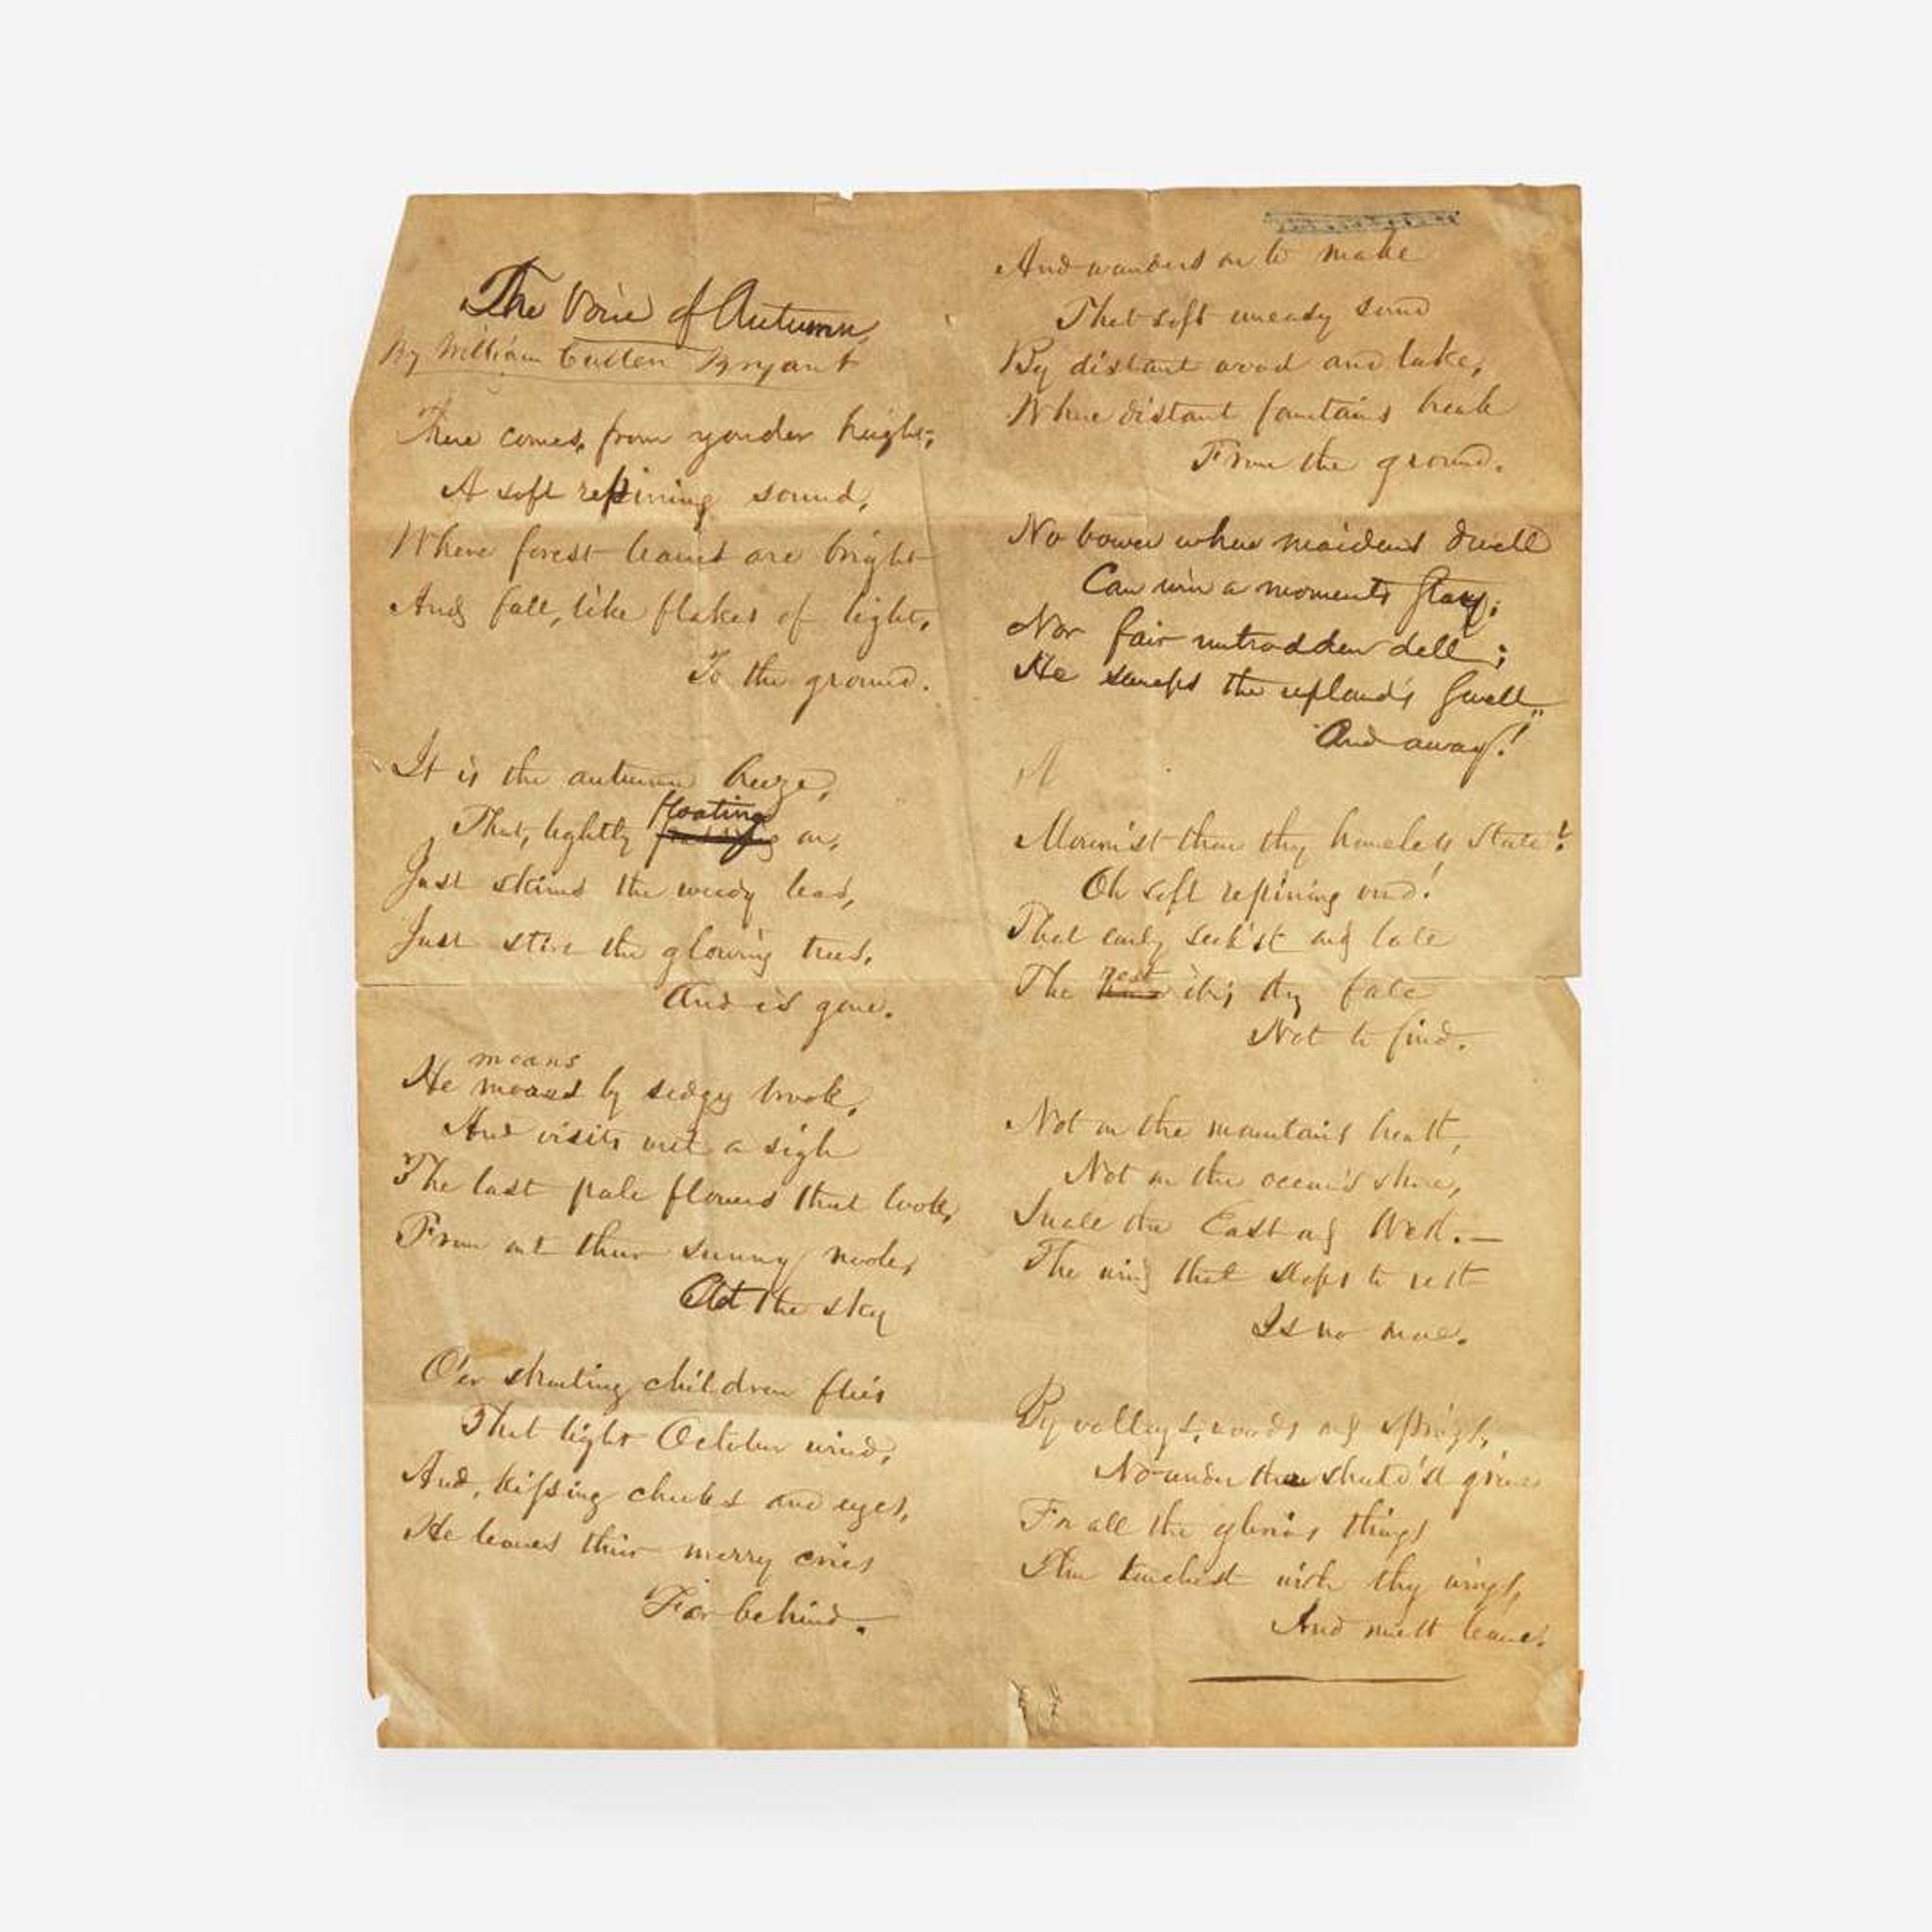 The Voice of Autumn,
By William Cullen Bryant
There comes, from yonder height,
A soft repining sound,
Where forest leaves are bright
And fall, like flakes of light,
To the ground.
It is the autumn breeze,
floating
That, lightly on,
Just skims the weedy leas,
Just stirs the glowing trees,
And is gone.
moans
He moans by sedgy brook,
And visits with a sigh
The last pale flowers that look,
From out their sunny nook,
At the sky
O'er shouting children flies
That light October wind,
And, kissing cheeks and eyes,
He leaves their merry cries
Far behind.
And wanders on to make
That soft uneasy sound
By distant wood and lake,
Where distant fountains break
From the ground.
No bower where maidens dwell
Can win a moments stay;
Nor fair untrodden dell;
He sweeps the upland's swell,
And away!
Mourn'st thou thy homeless state?
Oh soft repining wind!
That early seek'st and late
rest
The it is thy fate
Not to find.
Not on the mountain's breast,
Not on the ocean's shore,
In all the East and West.—
The wind that stops to rest
Is no more.
By valleys, woods and springs,
No wonder thou should'st grieve
For all the glorious things
Thou touchest with thy wings,
And must leave.